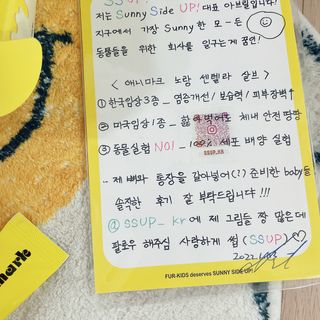 SSUP
저는 Sunny Side UP! 대표 아브릴입니다!
지구에서 가장 Sunny한 모-든
동물들을 위한 회사를 일구는게 꿈인!
< 애니마크 노랑 센텔라 살브 >
① 한국임상3종 _ 염증개선 / 보습력 / 피부장벽↑
② 미국임상1종 _ 핥아먹어도 체내 안전
③ 동물실험 NO! _ 100% 세포 배양 실험
SSUP_KR
.. 제 뼈와 통장을 갈아넣어(?) 준비한 baby들
솔직한 후기 잘 부탁드립니댜!!!
@SSUP_kr에 제 그림들 짱 많은데
팔로우 해주심 사랑하게 썹 (SSUP)♡
2022
FUR-KIDS deserves SUNNY SIDE UP!
mark